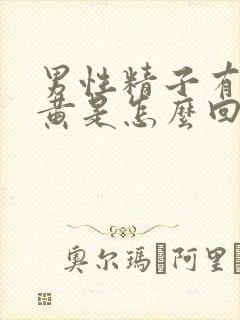 男性精子有
黄是怎麼回
奥尔瑪 阿里